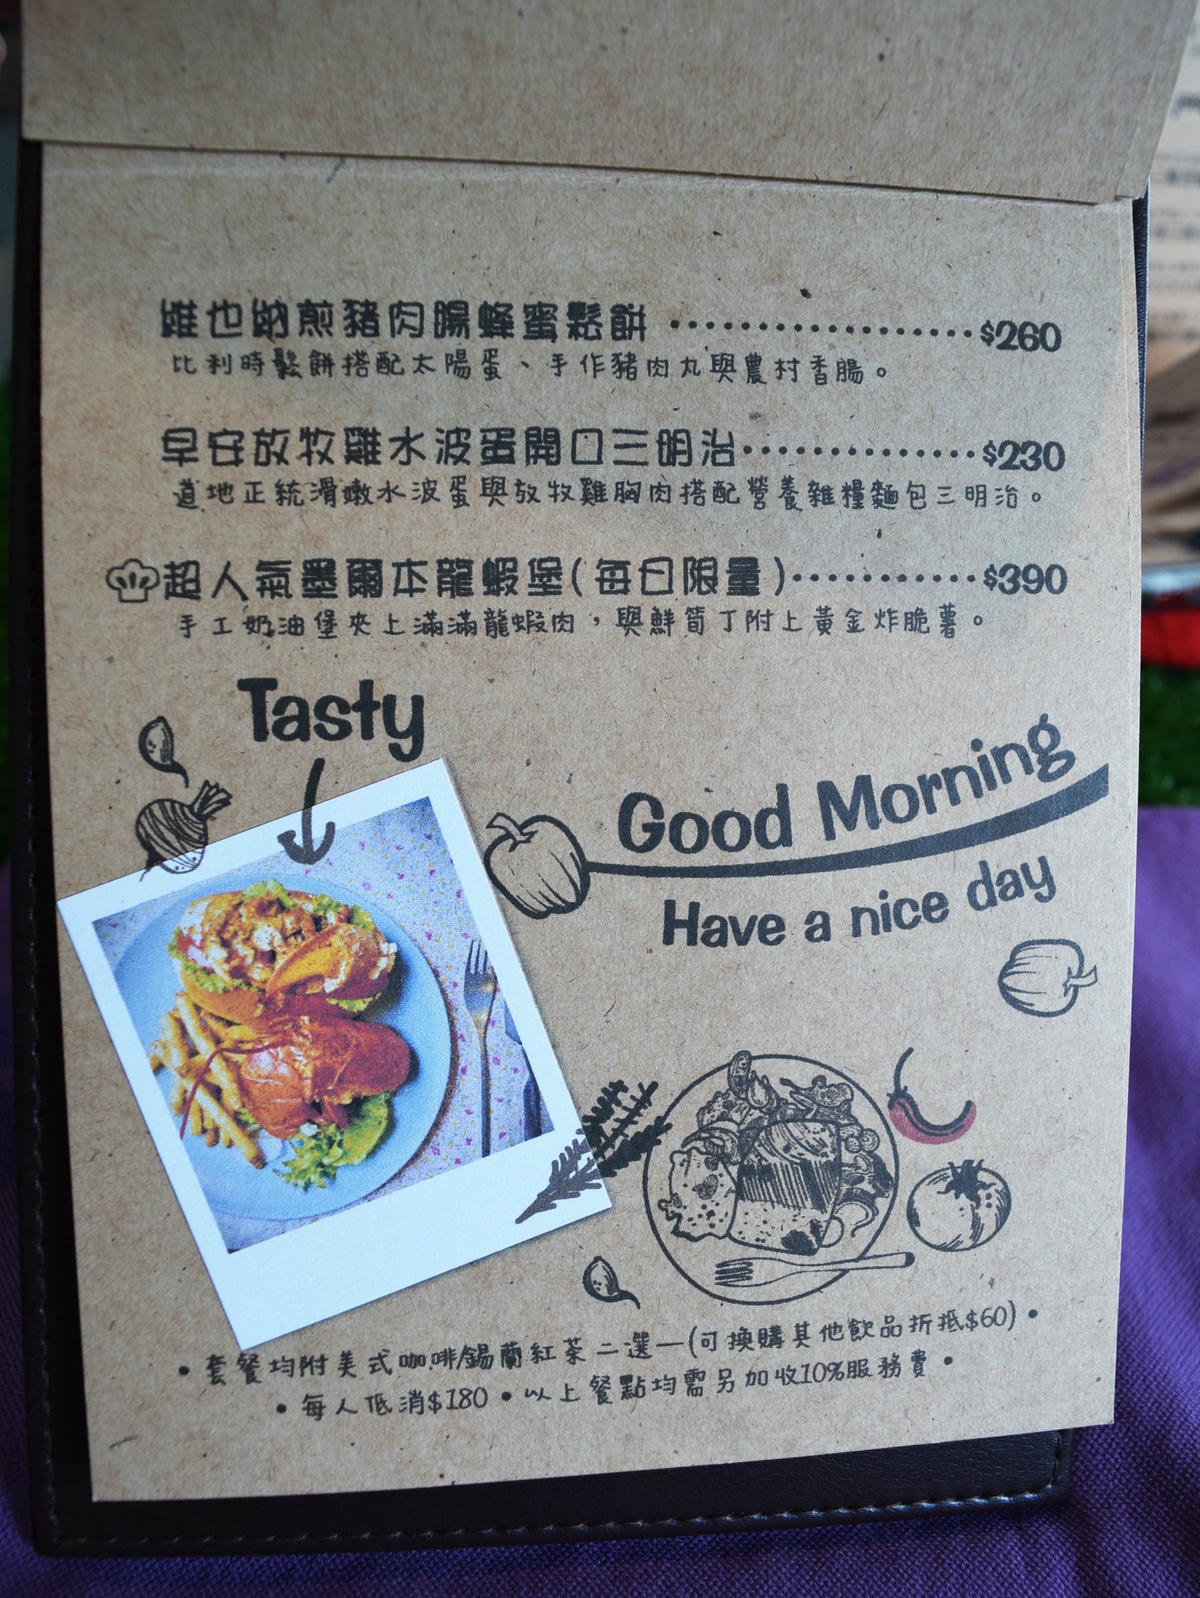 維也納煎豬肉腸蜂蜜鬆餅 ··················$260
比利時鬆餅搭配太陽蛋、手作豬肉丸與農村香腸。
早安放牧雞水波蛋開口三明治··············$230
道地正統滑嫩水波蛋與放牧雞胸肉搭配營養雜糧麵包三明治。
超人氣墨爾本龍蝦堡(每日限量)···········$390
手工奶油堡夾上滿滿龍蝦肉，與鮮筍丁附上黃金炸脆薯。
Tasty
Good Morning
Have a nice day
• 套餐均附美式咖啡/錫蘭紅茶二選一(可換購其他飲品折抵$60) •
• 每人低消$180 • 以上餐點均需另加收10%服務費 •